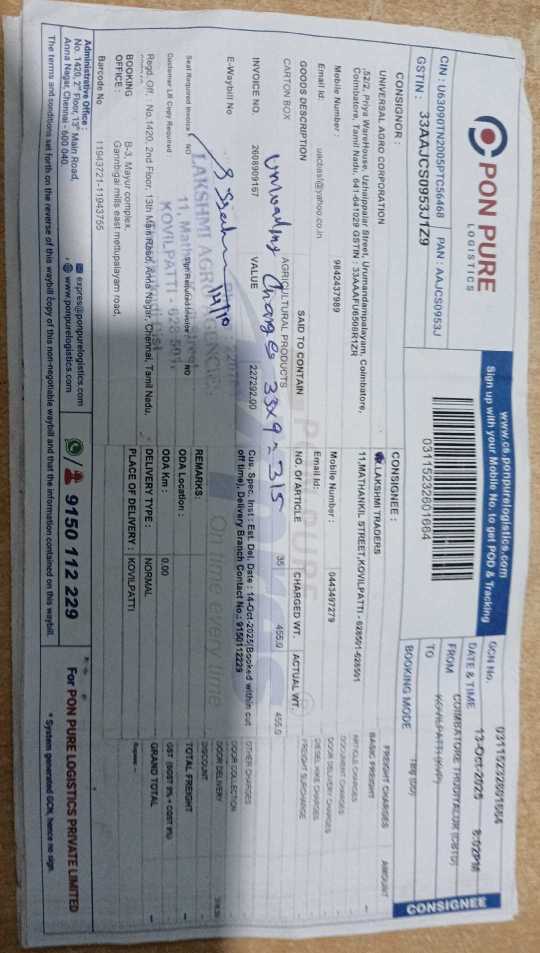 PON PURE
LOGISTICS
CIN : U63090TN2005PTC56468
PAN : AAJCS0953J
GSTIN : 33AAJCS0953J1Z9
www.cs.ponpurelogistics.com
Sign up with your Mobile No. to get POD & Tracking
03115232801684
GCN No.
DATE & TIME 13-Oct-2025 8:02PM
FROM COIMBATORE THUDIYALUR (CBTD)
TO KOVILPATTI (KVP)
BOOKING MODE
CONSIGNEE
CONSIGNOR :
UNIVERSAL AGRO CORPORATION
,52/2, Priya WareHouse, Uzhaippalar Street, Urumandampalayam, Coimbatore,
Coimbatore, Tamil Nadu, 641-641029 GSTIN : 33AAAFU6508R1ZR
Mobile Number : 9842437989
Email Id: uacbasf@yahoo.co.in
CONSIGNEE :
LAKSHMI TRADERS
11,MATHANKIL STREET,KOVILPATTI - 628501-628501
Mobile Number : 0443497279
Email Id:
GOODS DESCRIPTION
SAID TO CONTAIN
NO. OF ARTICLE
CHARGED WT.
ACTUAL WT.
CARTON BOX
AGRICULTURAL PRODUCTS
35
455.0
455.0
INVOICE NO. 2608909157
VALUE 227292.00
unloading charge 33x9 = 315
Cus. Spec. Inst : Est. Del. Date : 14-Oct-2025(Booked within cut
off time), Delivery Branch Contact No.: 9150112229
E-Waybill No
REMARKS:
Seal Required Invoice : NO
LAKSHMI AGRO
11, Math
KOVILPATTI - 628 501
14/10
Customer LR Copy Required
NO
ODA Location :
ODA Km : 0.00
Regd. Off : No.1420, 2nd Floor, 13th Main Road, Anna Nagar, Chennai, Tamil Nadu,
DELIVERY TYPE : NORMAL
PLACE OF DELIVERY : KOVILPATTI
BOOKING
OFFICE :
B-3, Mayur complex,
Ganhbigai mills east mettupalayam road,
Barcode No 11943721-11943755
FREIGHT CHARGES AMOUNT
BASIC FREIGHT
ARTICLE CHARGES
DOCUMENT CHARGES
DOOR DELIVERY CHARGES
DIESEL HIKE CHARGES
FREIGHT SURCHARGE
OTHER CHARGES
DOOR COLLECTION
DOOR DELIVERY
DISCOUNT
TOTAL FREIGHT
GRAND TOTAL
On time every time
Administrative Office :
No. 1420, 2nd Floor, 13th Main Road,
Anna Nagar, Chennai - 600 040.
expres@ponpurelogistics.com
www.ponpurelogistics.com
9150 112 229
For PON PURE LOGISTICS PRIVATE LIMITED
The terms and conditions set forth on the reverse of this waybill copy of this non-negotiable waybill and that the information contained on this waybill.
* System generated GCN, hence no sign.